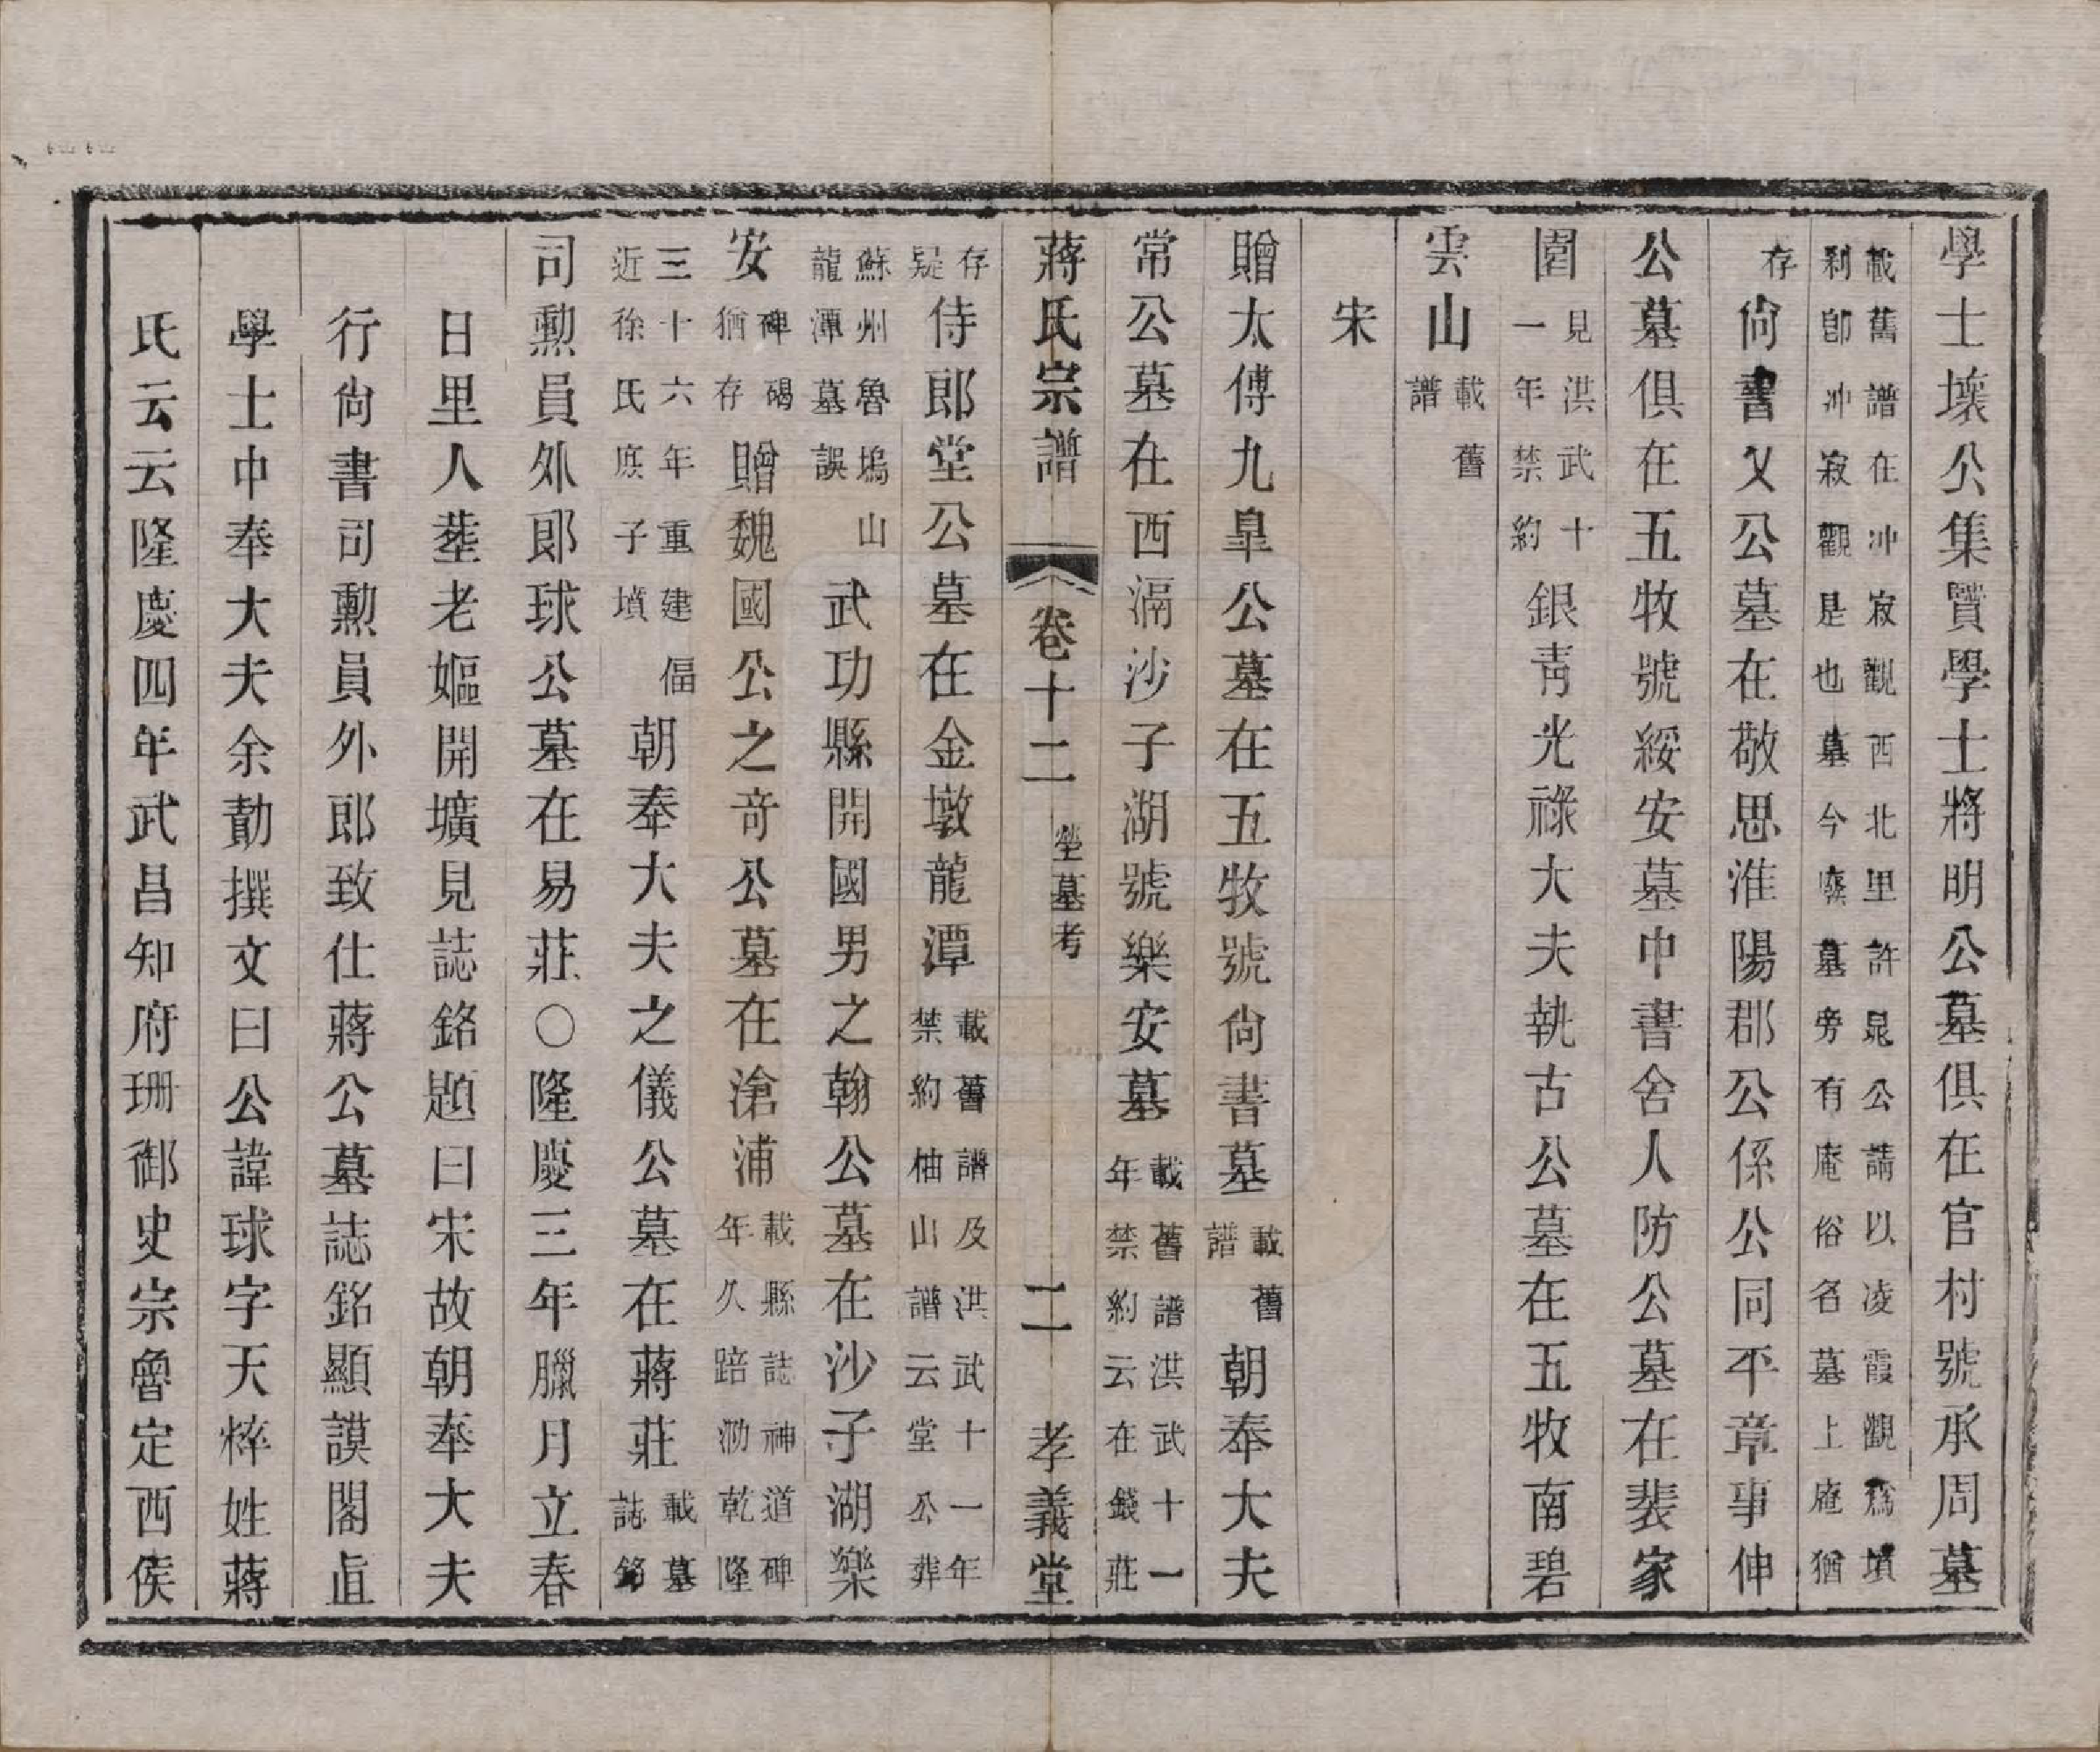 學士壞公集賢學士將明公墓俱在官村號承周墓
載舊譜在冲寂觀西北里許晁公請以凌霞觀爲墳
刹卽冲寂觀是也墓今廢墓旁有庵俗名墓上庵猶
存 尙書乂公墓在敬思淮陽郡公係公同平章事伸
公墓俱在五牧號綏安墓中書舍人防公墓在裴家
園 見洪武十
一年禁約 銀靑光祿大夫執古公墓在五牧南碧
雲山 載舊
譜
宋
贈太傅九臯公墓在五牧號尙書墓 載舊
譜 朝奉大夫
常公墓在西滆沙子湖號樂安墓 載舊譜洪武十一
年禁約云在錢莊
蔣氏宗譜 卷十二 塋墓考 二 孝義堂
存
疑 侍郎堂公墓在金墩龍潭 載舊譜及洪武十一年
禁約柚山譜云堂公葬
蘇州魯塢山
龍潭墓誤 武功縣開國男之翰公墓在沙子湖樂
安 碑碣
猶存 贈魏國公之奇公墓在滄浦 載縣誌神道碑
年久踣泐乾隆
三十六年重建偪
近徐氏庶子墳 朝奉大夫之儀公墓在蔣莊 載墓
誌銘
司勲員外郎球公墓在易莊○隆慶三年臘月立春
日里人塟老嫗開壙見誌銘題曰宋故朝奉大夫
行尙書司勲員外郎致仕蔣公墓誌銘顯謨閣直
學士中奉大夫余勭撰文曰公諱球字天粹姓蔣
氏云云隆慶四年武昌知府珊御史宗魯定西侯